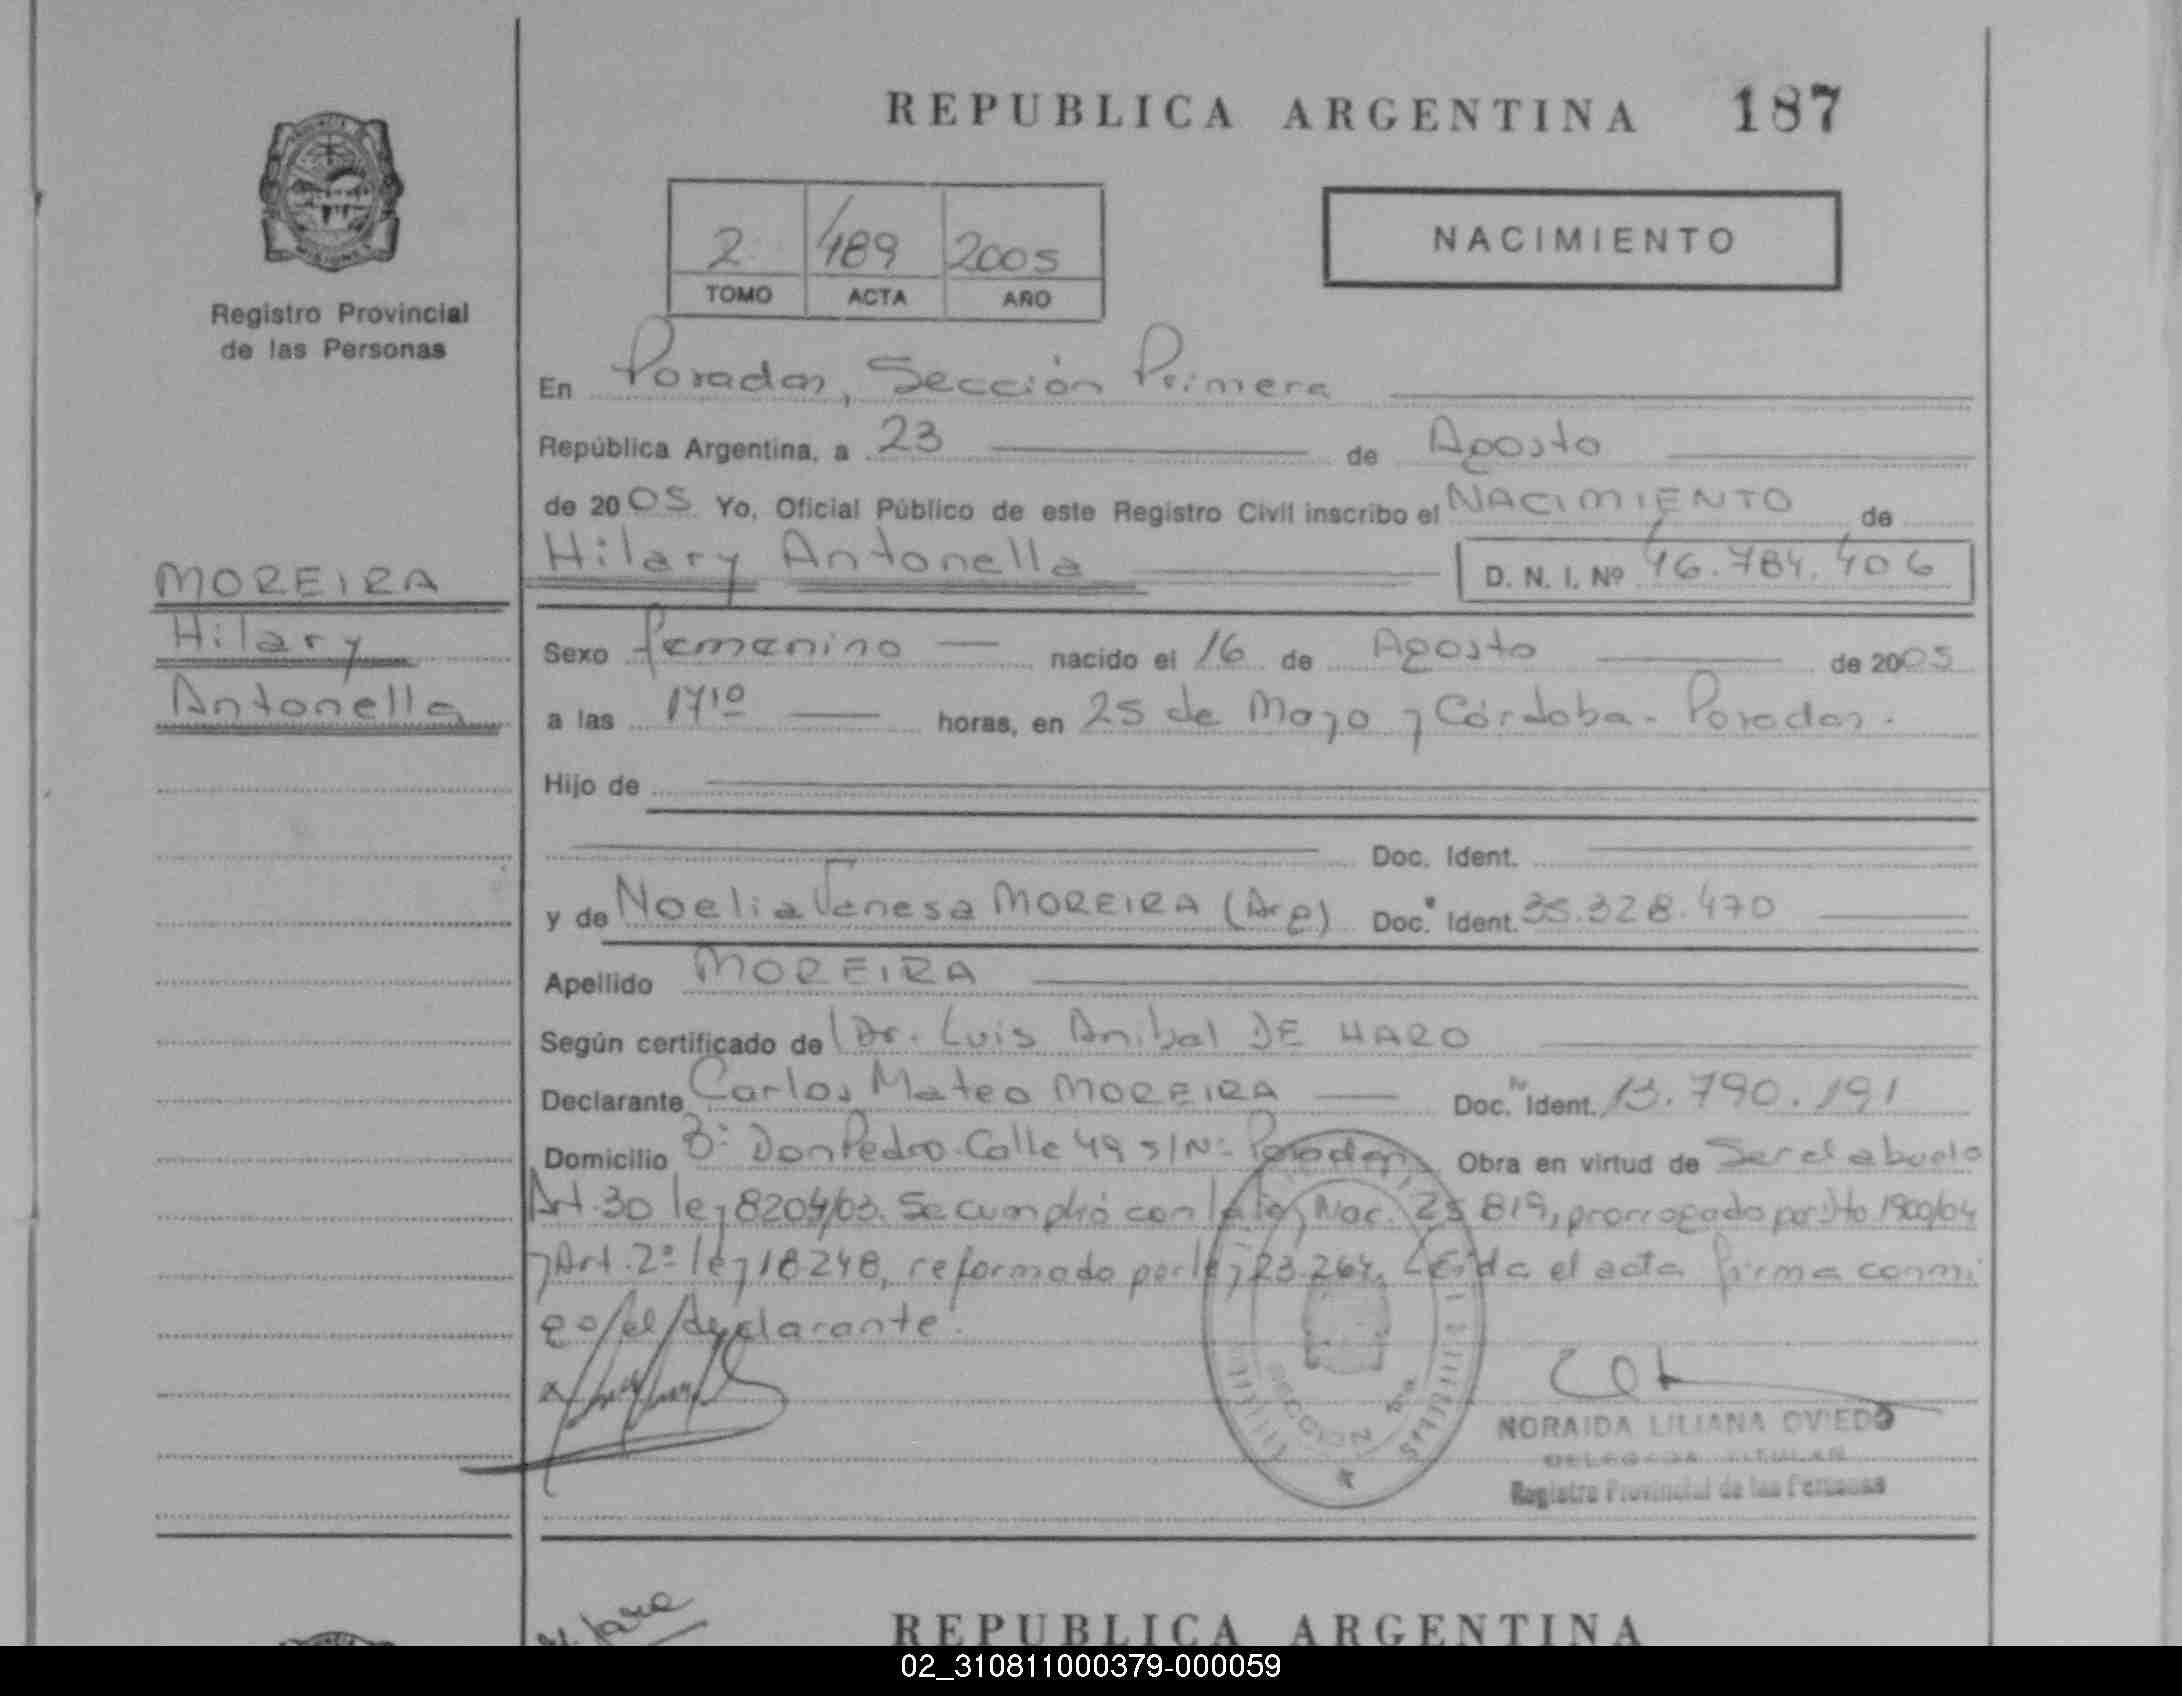 REPUBLICA ARGENTINA 187
2 489 2005
TOMO ACTA AÑO
NACIMIENTO
Registro Provincial
de las Personas
En Posadas, Sección Primera
República Argentina, a 23 de Agosto
de 2005 Yo, Oficial Público de este Registro Civil inscribo el NACIMIENTO de
Hilary Antonella D. N. I. Nº 46.784.406
MOREIRA
Hilary
Antonella
Sexo femenino nacido el 16 de Agosto de 2005
a las 17¹⁰ horas, en 25 de Mayo y Córdoba - Posadas.
Hijo de
Doc. Ident.
y de Noelia Vanesa MOREIRA (Arg) Doc. Ident. 35.328.470
Apellido MOREIRA
Según certificado de Dr. Luis Anibal DE HARO
Declarante Carlos Mateo MOREIRA Doc. Ident. 13.790.191
Domicilio Bº Don Pedro-Calle 49 s/Nº Posadas Obra en virtud de Ser el abuelo
Art. 30 ley 8204/63. Se cumplió con la ley Nac. 25 819, prorrogado por Dto 1900/04
y Art. 2º ley 18248, reformado por ley 23.264. Leída el acta firma conmi
go el declarante.
SECCION 1ra
NORAIDA LILIANA OVIEDO
DELEGADA TITULAR
Registro Provincial de las Personas
REPUBLICA ARGENTINA
02_310811000379-000059